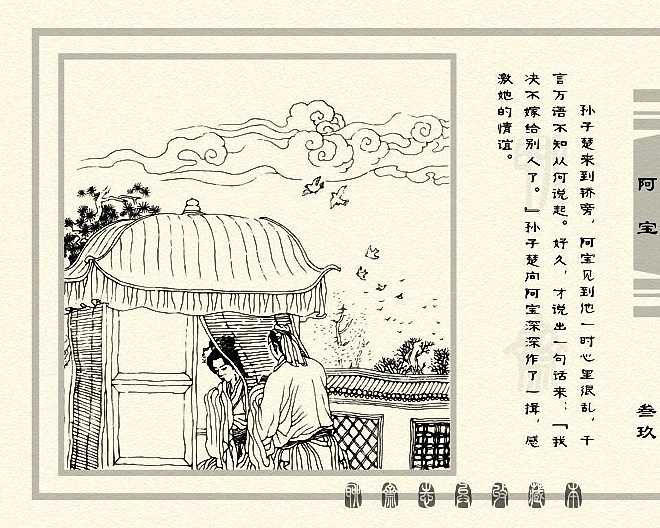 孙子楚来到轿旁，阿宝见到他一时心里很乱，千
言万语不知从何说起。好久，才说出一句话来：『我
决不嫁给别人了。』孙子楚向阿宝深深作了一揖，感
激她的情谊。
阿宝
叁玖